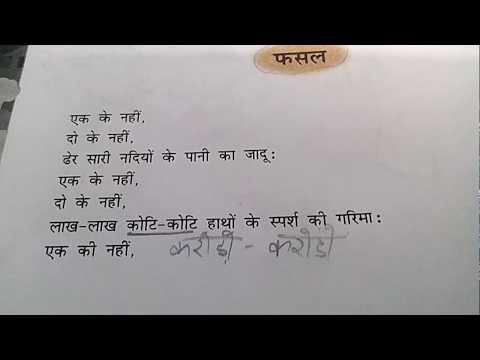 फसल
एक के नहीं,
दो के नहीं,
ढेर सारी नदियों के पानी का जादू:
एक के नहीं,
दो के नहीं,
लाख-लाख कोटि-कोटि हाथों के स्पर्श की गरिमा:
एक की नहीं, करोड़ों - करोड़ों